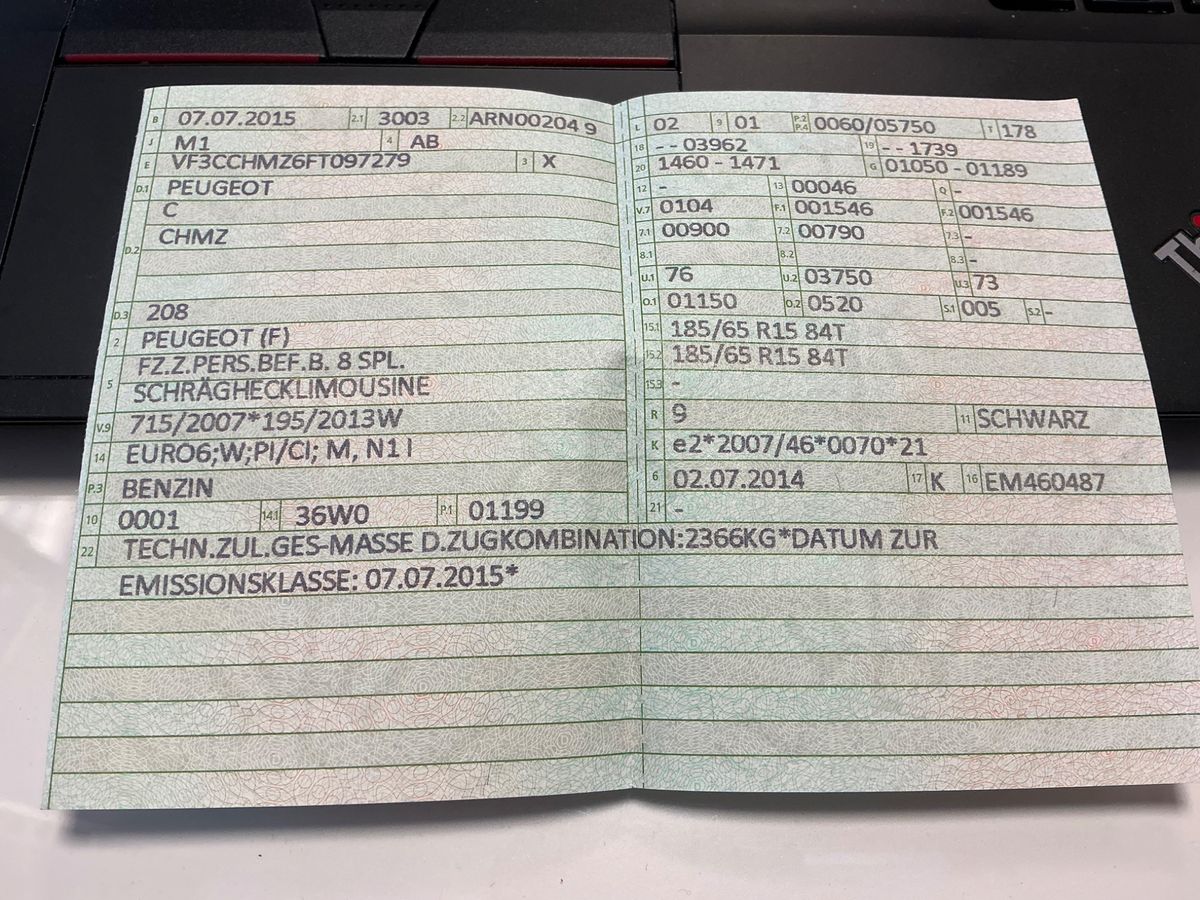 B 07.07.2015 2.1 3003 2.2 ARN00204 9
J M1 4 AB
E VF3CCHMZ6FT097279 3 X
D.1 PEUGEOT
C
D.2 CHMZ
D.3 208
2 PEUGEOT (F)
FZ.Z.PERS.BEF.B. 8 SPL.
5 SCHRÄGHECKLIMOUSINE
V.9 715/2007*195/2013W
14 EURO6;W;PI/CI; M, N1 I
P.3 BENZIN
10 0001 14.1 36W0 P.1 01199
L 02 9 01 P.2 P.4 0060/05750 T 178
18 - - 03962 19 - - 1739
20 1460 - 1471 G 01050 - 01189
12 - 13 00046 Q -
V.7 0104 F.1 001546 F.2 001546
7.1 00900 7.2 00790 7.3 -
8.1 8.2 8.3 -
U.1 76 U.2 03750 U.3 73
O.1 01150 O.2 0520 S.1 005 S.2 -
15.1 185/65 R15 84T
15.2 185/65 R15 84T
15.3 -
R 9 11 SCHWARZ
K e2*2007/46*0070*21
6 02.07.2014 17 K 16 EM460487
21 -
22 TECHN.ZUL.GES-MASSE D.ZUGKOMBINATION:2366KG*DATUM ZUR
EMISSIONSKLASSE: 07.07.2015*